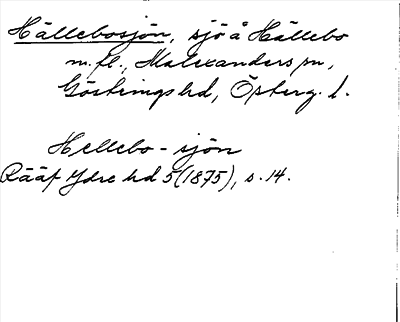 Hällebosjön, sjö å Hällebo
m.fl., Malexanders sn,
Göstrings hd, Österg. l.
Hellebo-sjön
Rääf Ydre hd 5(1875), s. 14.